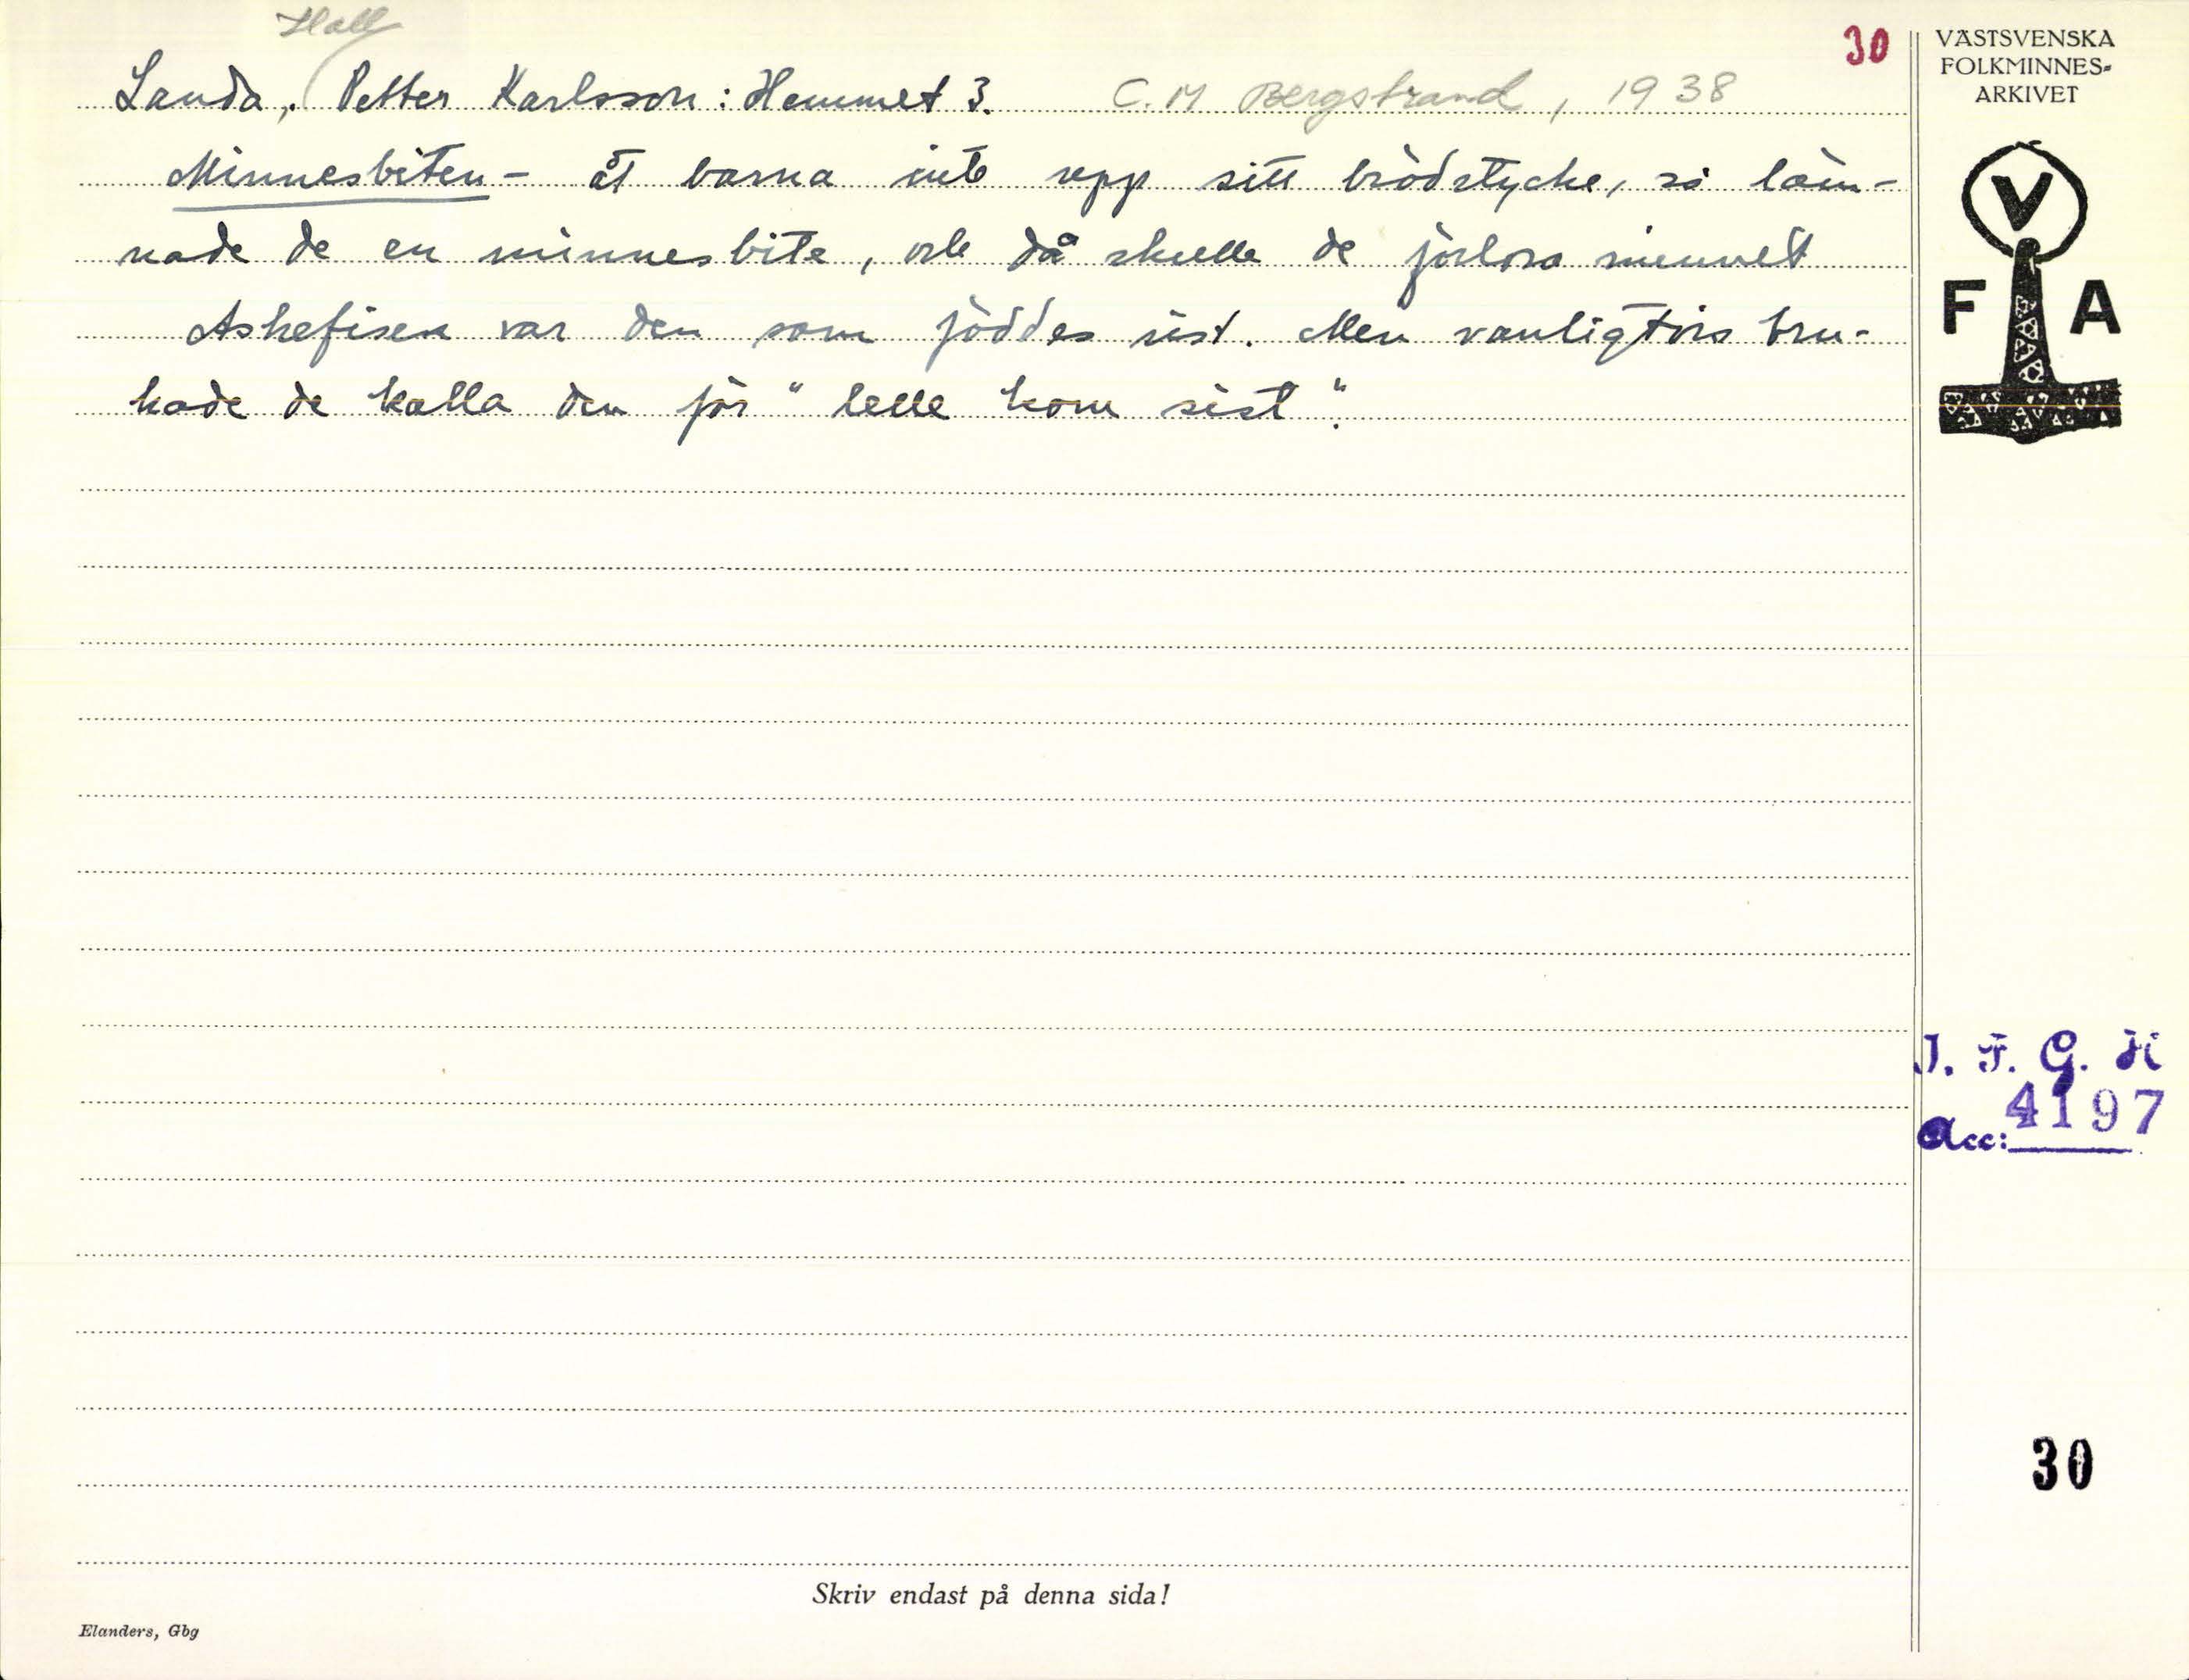 Hall
30
Landa, Petter Karlsson: Hemmet 3. C. M Bergstrand, 1938
Minnesbiten - åt barna inte upp sitt brödstycke, så läm-
nade de en minnesbite, och då skulle de förlora minnet
Askefisen var den som föddes sist. Men vanligtvis bru-
kade de kalla den för "lelle kom sist".
VÄSTSVENSKA
FOLKMINNES-
ARKIVET
V
F A
I. F. G. H
Acc: 4197
30
Skriv endast på denna sida!
Elanders, Gbg